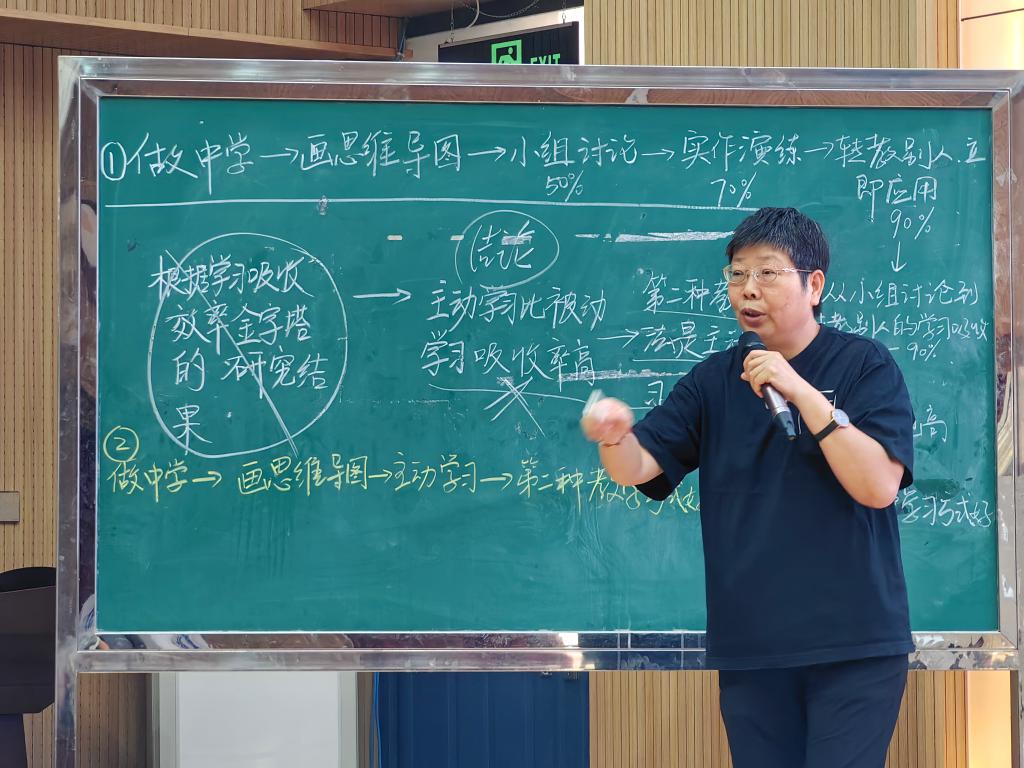 EXIT
①做中学→画思维导图→小组讨论→实作演练→转教别人.立
50% 70% 即应用
90%
↓
结论
根据学习吸收
效率金字塔
的研究结
果
→
主动学习比被动
学习吸收率高
第二种
→法是主
习
从小组讨论到
别人的学习吸收
90%
高
②
做中学→画思维导图→主动学习→第二种教学方式
学习方式好